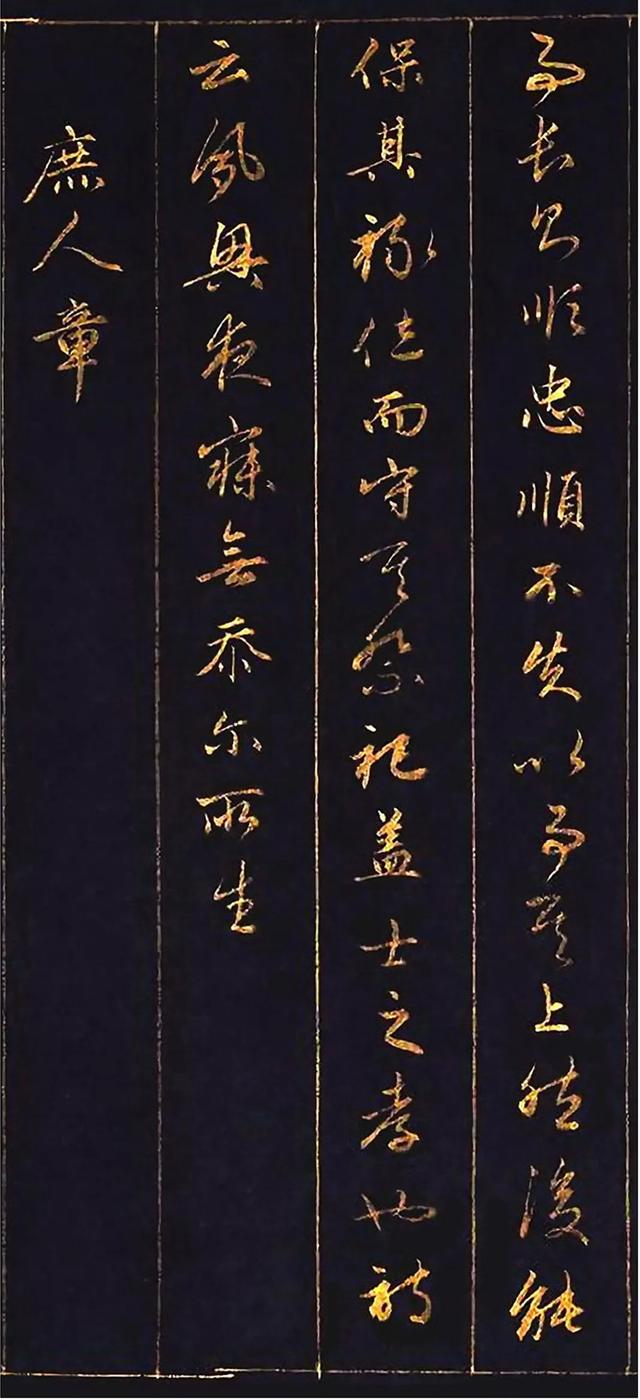 事长則順忠順不失以事其上然後能
保其祿位而守其祭祀盖士之孝也詩
云夙興夜寐無忝尔所生
庶人章